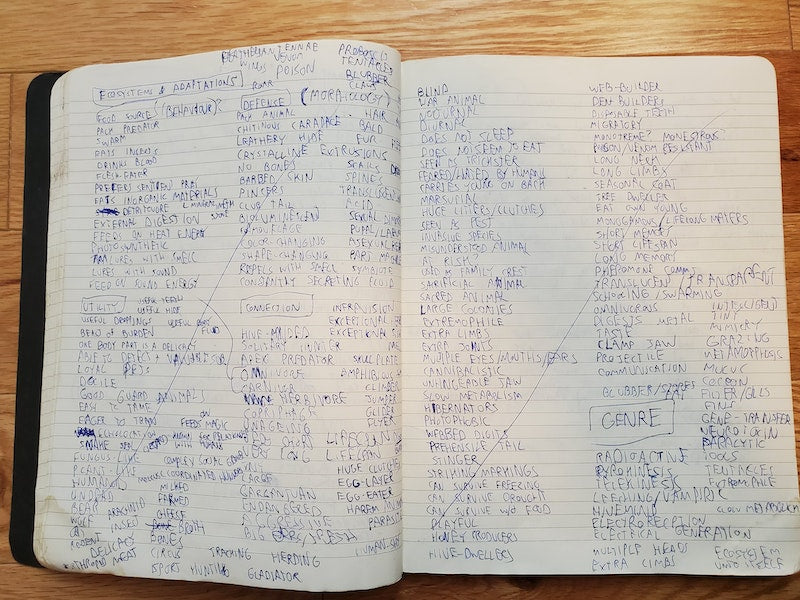 VENOM
WINGS POISON
PROBOSCIS
TENTACLES
BLUBBER
CLAWS
ECOSYSTEMS & ADAPTATIONS
FOOD SOURCE (BEHAVIOUR)
PACK PREDATOR
SWARM
EATS INSECTS
DRINKS BLOOD
FLESH-EATER
PREFERS SENTIENT PREY
EATS INORGANIC MATERIALS
DETRITIVORE
EXTERNAL DIGESTION
FEEDS ON HEAT ENERGY
PHOTOSYNTHETIC
LURES WITH SMELL
LURES WITH SOUND
FEED ON SOUND ENERGY
UTILITY
USEFUL TEETH
USEFUL HIDE
USEFUL DROPPINGS USEFUL BODY FLUID
BEAST OF BURDEN
ONE BODY PART IS A DELICACY
ABLE TO DETECT
LOYAL
DOCILE
GOOD GUARD ANIMALS
EASY TO TAME
EAGER TO TRAIN
ECHOLOCATION
FUNGUS-LIKE
PLANT-LIKE
HUMANOID
UNDEAD
BEAR ARACHNID
WOLF INSECT
CAT
RODENT
DELICACY
MEAT
MILKED
FARMED
CHEESE
BROTH
BONES
CIRCUS TRACKING HERDING
SPORT HUNTING GLADIATOR
DEFENCE (MORPHOLOGY)
PACK ANIMAL HAIR
CHITINOUS CARAPACE BALD
LEATHERY HIDE FUR
CRYSTALLINE EXTRUSIONS
NO BONES SCALE
BARBED/SKIN SPINES
PINCERS
CLUB TAIL ACID
BIOLUMINESCENT
CAMOUFLAGE
COLOR-CHANGING
SHAPE-CHANGING
REPELS WITH SMELL
CONSTANTLY SECRETING FLUID
CONNECTION
INFRAVISION
HIVE-MINDED
SOLITARY HUNTER
APEX PREDATOR SKULL PLATE
OMNIVORE AMPHIBIOUS
CARNIVORE CLIMBER
HERBIVORE JUMPER
COPRIPHAGE GLIDER
UNAGEING FLYER
FEEDS MAGIC
VERY SHORT LIFESPAN
VERY LONG LIFESPAN
TINY HUGE CLUTCHES
LARGE EGG-LAYER
GARGANTUAN EGG-EATER
ENDANGERED
AGGRESSIVE
BIG EARS
BLIND
WAR ANIMAL
NOCTURNAL
DIURNAL
DOES NOT SLEEP
DOES NOT SEEM TO EAT
SEEN AS TRICKSTER
FEARED/HATED BY HUMANS
CARRIES YOUNG ON BACK
MARSUPIAL
HUGE LITTERS/CLUTCHES
SEEN AS PEST
INVASIVE SPECIES
MISUNDERSTOOD ANIMAL
AT RISK?
USED AS FAMILY CREST
SACRIFICIAL ANIMAL
SACRED ANIMAL
LARGE COLONIES
EXTREMOPHILE
EXTRA LIMBS
EXTRA JOINTS
MULTIPLE EYES/MOUTHS/EARS
CANNIBALISTIC
UNHINGEABLE JAW
SLOW METABOLISM
HIBERNATORS
PHOTOPHOBIC
WEBBED DIGITS
PREHENSILE TAIL
STINGER
STRIKING MARKINGS
CAN SURVIVE FREEZING
CAN SURVIVE DROUGHT
CAN SURVIVE W/O FOOD
PLAYFUL
HONEY PRODUCERS
HIVE-DWELLERS
WEB-BUILDER
DEN BUILDERS
DISPOSABLE TEETH
MIGRATORY
MONOTREME? MONESTROUS?
POISON/VENOM RESISTANT
LONG NECK
LONG LIMBS
SEASONAL COAT
TREE DWELLER
EAT OWN YOUNG
MONOGAMOUS/LIFELONG MATERS
SHORT MEMORY
SHORT LIFESPAN
LONG MEMORY
PHEROMONE COMMS
TRANSLUCENT/TRANSPARENT
SCHOOLING/SWARMING
OMNIVOROUS INTELLIGENT
DIGESTS METAL TINY
TASTE MIMICRY
CLAMP JAW GRAZING
PROJECTILE METAMORPHOSIS
COMMUNICATION MUCUS
COCOON
BLUBBER/STORES FAT FILTER/GILLS
FINS
GENRE
GENE-TRANSFER
NEUROTOXIN
PARALYTIC
RADIOACTIVE TOOLS
PYROKINESIS TENTACLES
TELEKINESIS EXTREMOPHILE
LEECHING/VAMPIRIC
HIVEMIND SLOW METABOLISM
ELECTRORECEPTION
ELECTRICAL GENERATION
MULTIPLE HEADS ECOSYSTEM
EXTRA LIMBS UNTO ITSELF